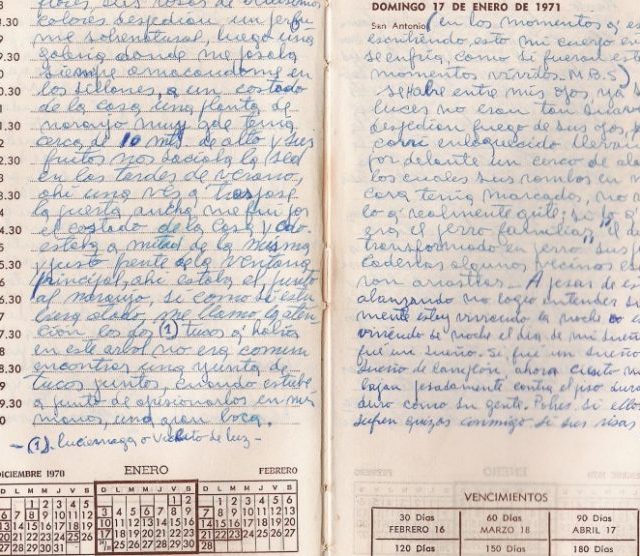 flores, sus rosas de
colores despedían un perfu
me sobrenatural, luego una
galería donde me pasaba
siempre amacandome en
los sillones, a un costado
de la casa una planta de
naranjo muy gde tenía
cerca de 10 mts de alto y sus
frutos nos saciaba la sed
en las tardes de verano,
ahí una vez a traspase
la puerta ancha, me fui por
el costado de la casa y cdo.
estaba a mitad de la misma
y justo frente de la ventana
principal, ahí estaba el, junto
al naranjo, si como si estu
me llamo la aten
ción los dos (1) tucos q' había
en este arbol no era comun
encontrar una yunta de
tucos juntos, cuando estube
a punto de apisionarlos en mis
manos, una gran boca.
- (1) luciernaga o vichito de luz -
DICIEMBRE 1970
ENERO
FEBRERO
DOMINGO 17 DE ENERO DE 1971
San Antonio (en los momentos q' e
escribiendo esto mi cuerpo en
se enfría, como si fueran est
momentos vividos. M.B.S)
se abre entre mis ojos, ya s
luces no eran tan
despedían fuego de sus ojos,
corri enloquecido llevan
por delante un cerco de al
los cuales sus rombos en m
cara tenía marcados, no
lo q' realmente quise, si lo q
era el perro familiar, "el de
transformado en perro" sus
cadenas algunos vecinos
ron arrastrar. - A pesar de es
alcanzando no logro entender si
mente estoy viviendo la noche o
viviendo de noche el día de mi sueño
fue un sueño. Si, fue un sueño
sueño de ahora cuanto m
bajan pesadamente contra el piso duro
duro como su gente. Pobres, si ellos
sufren quizas conmigo si sus risas
VENCIMIENTOS
30 Días 60 Días 90 Días
FEBRERO 16 MARZO 18 ABRIL 17
120 Días 150 Días 180 Días